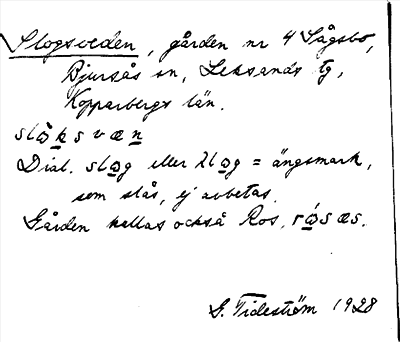 Slogsveden, gården nr 4 Sågsbo,
Bjursås sn, Leksands tg,
Kopparbergs län.
slò̱ksvæṉ
Dial. slo̱g eller λlo̱g = ängsmark,
som slås, ej arbetas.
Gården kallas också Ros, ró̱sæs.
G. Tideström 1928